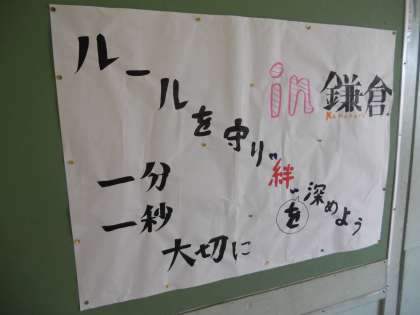 ルールを守り"絆"を深めよう
in 鎌倉
Kamakura
一分
一秒
大切に